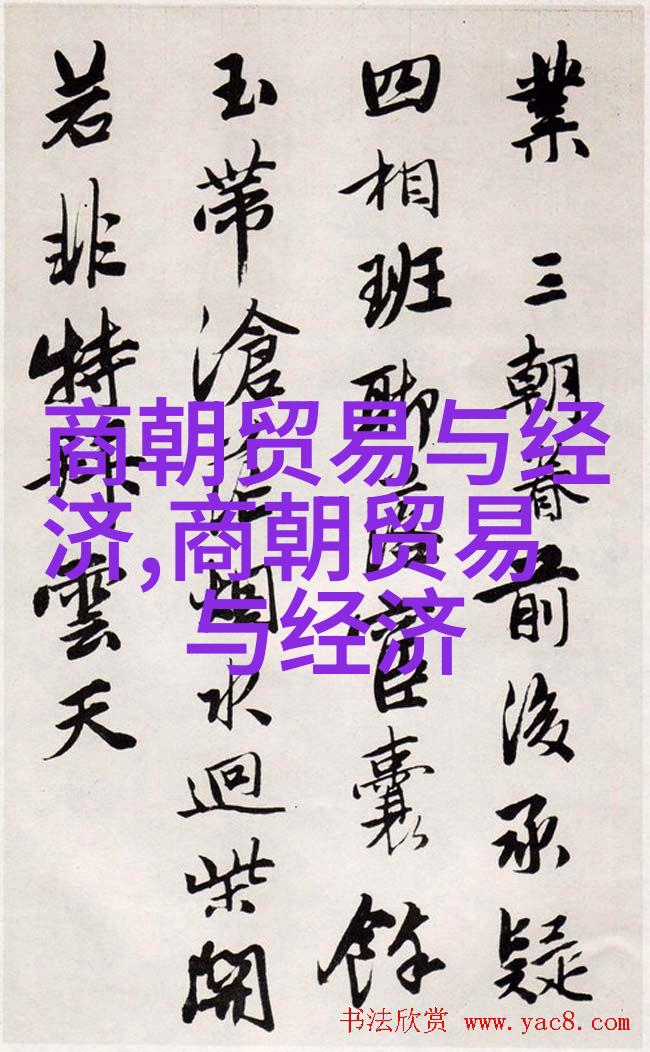 業 三朝春前後承疑
四相班聯
宦囊餘
玉帶滄
烟水迴柴関
若非特
雲天
商朝贸易与经
济,商朝贸易
与经济
书法欣赏 www.yac8.com